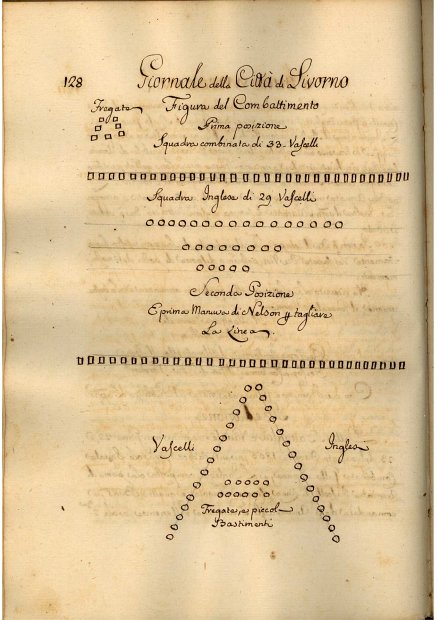 128
Giornale della Città di Livorno
Fregate
Figura del Combattimento
Prima posizione
Squadra combinata di 33 Vascelli
Squadra Inglese di 29 Vascelli
Seconda Posizione
E prima di Nelson p tagliare
La Linea
Vascelli Inglesi
Fregate, e piccol
Bastimenti